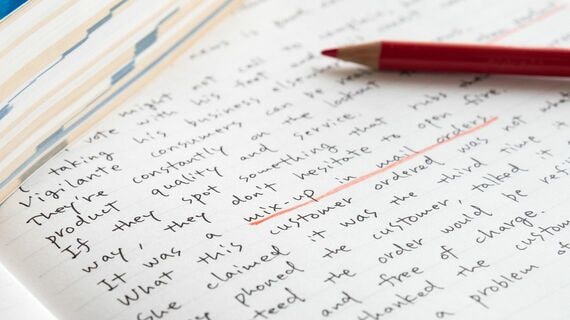 news is
might not call to
vote with his feet and
taking his business elsewhere
Vigilante consumers can be
They're constantly on the lookout
product quality and service.
If they spot something that rubs
way, they don't hesitate to open fire.
It was a mix-up in mail orders
What this customer ordered was not what
She claimed it was the third time it
phoned the customer, talked
teed the order would be
and free of charge.
thanked the customer
a problem of